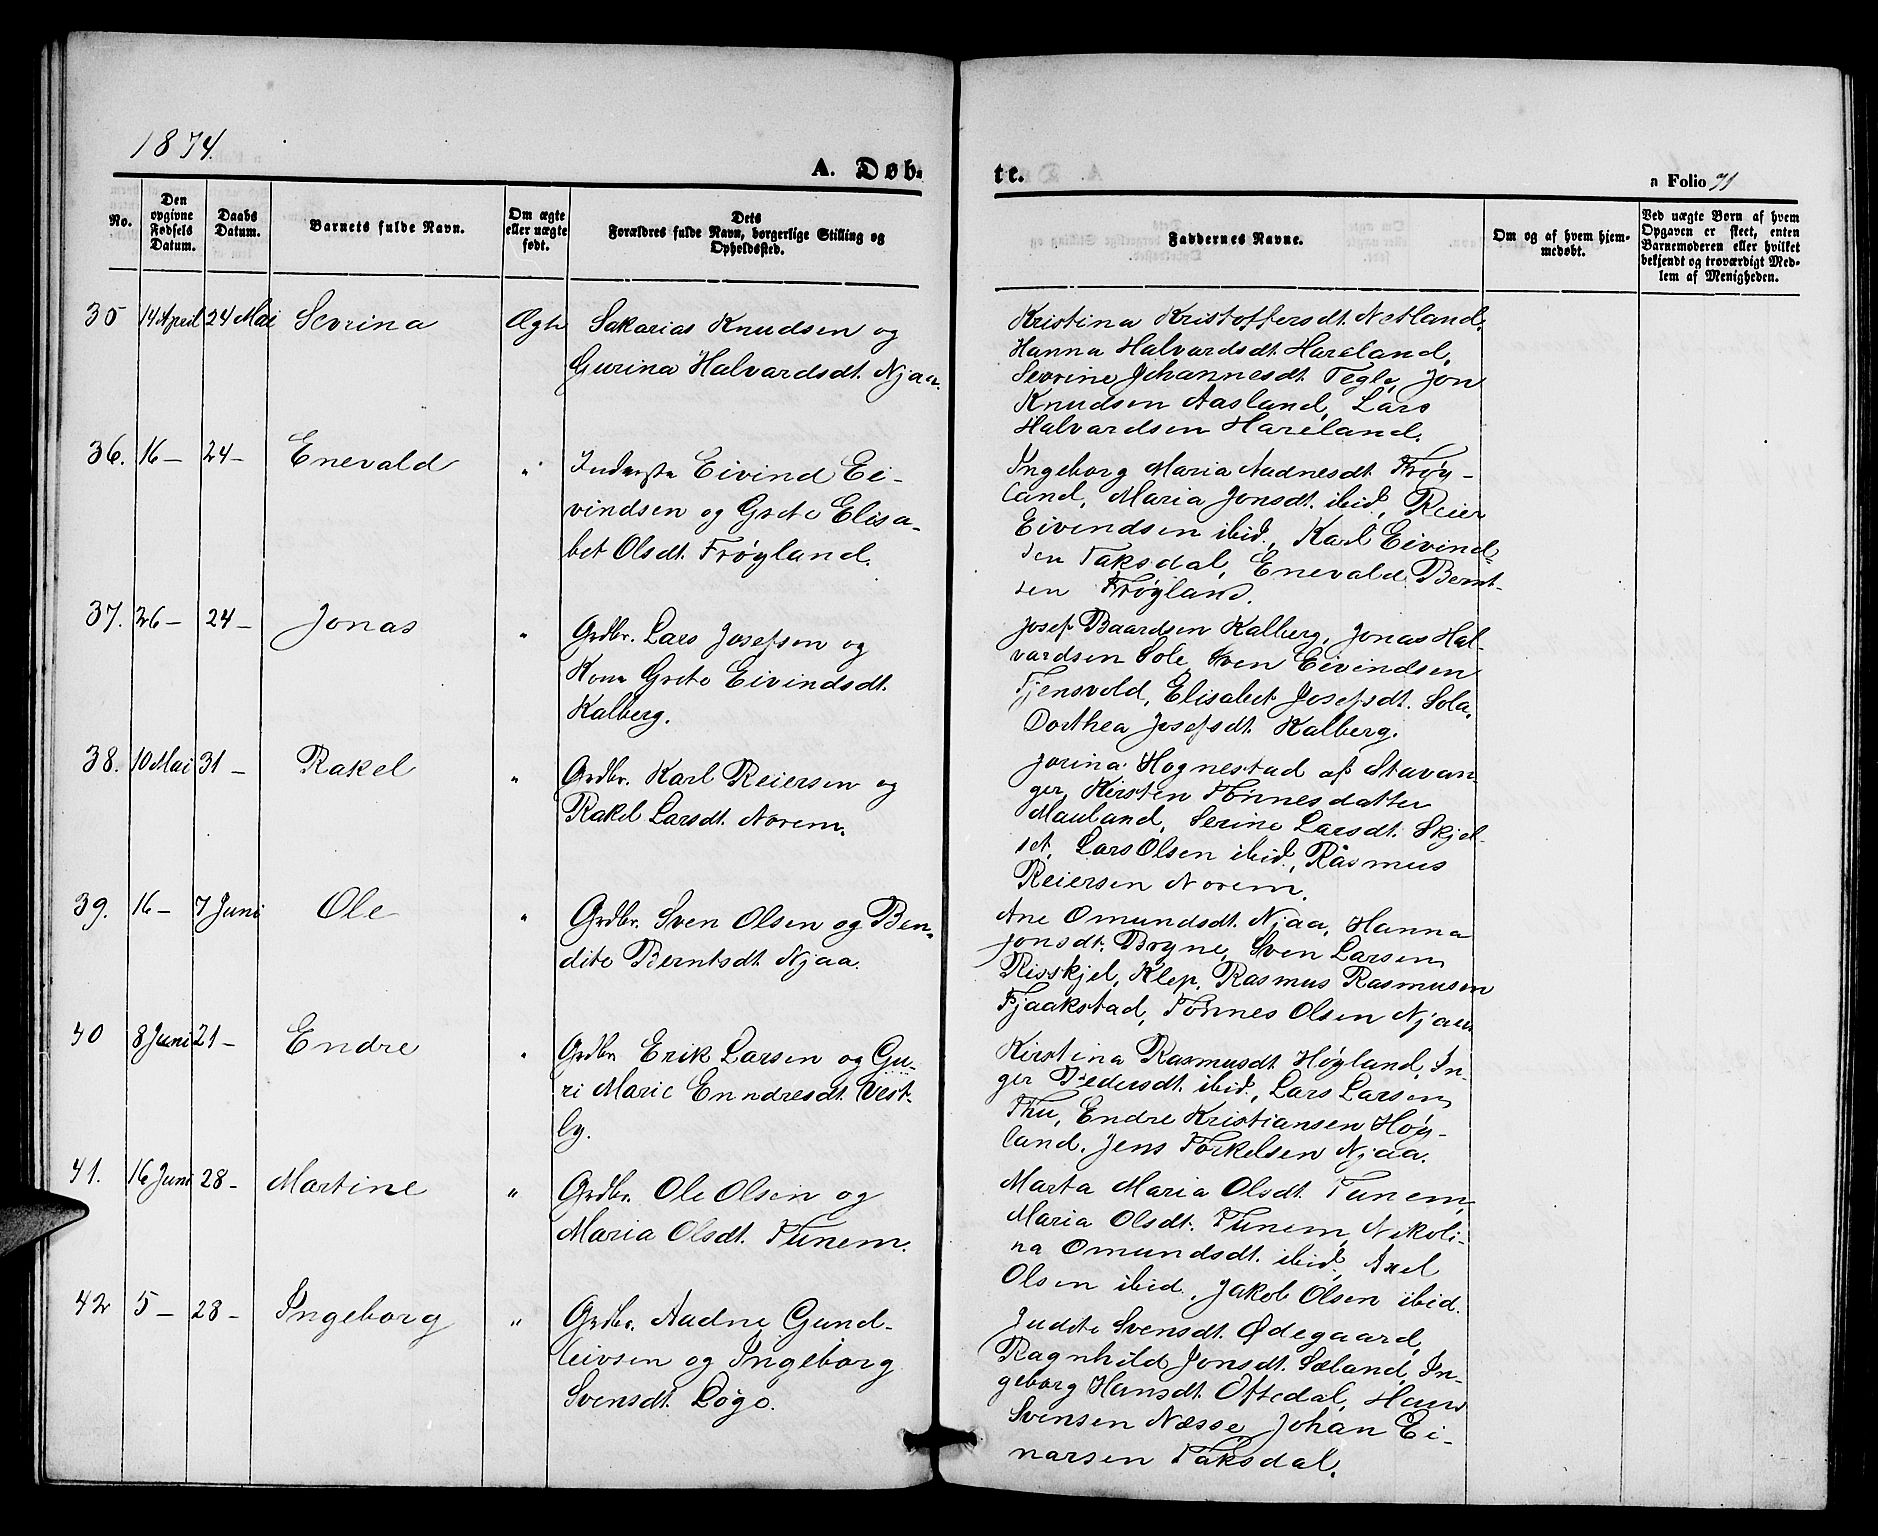 1874.
A. Døb-
te.
a Folio 71
No.
Den
opgivne
Fødsels
Datum.
Daabs
Datum.
Barnets fulde Navn.
Om ægte
eller uægte
født.
Dets
Forældres fulde Navn, borgerlige Stilling og
Opholdssted.
Faddernes Navne.
Om og af hvem hjem-
medøbt.
Ved uægte Børn af hvem
Opgaven er skeet, enten
Barnemoderen eller hvilket
bekjendt og troværdigt Med-
lem af Menigheden.
35 14 April 24 Mai Sevrina Ægte
Sakarias Knudsen og
Gurina Halvardsdt. Njaa.
Kristina Kristoffersdt. Netland,
Hanna Halvardsdt. Hareland,
Sevrine Johannesdt. Tegle, Jon
Knudsen Aasland, Lars
Halvardsen Hareland.
36. 16 – 24 – Enevald "
Inderste Eivind Ei-
vindsen og Grete Elisa-
bet Olsdt. Frøyland.
Ingeborg Maria Aadnesdt. Frøy-
land, Maria Jonsdt. ibid, Reier
Eivindsen ibid., Karl Eivind-
sen Taksdal, Enevald Bernt-
sen Frøyland.
37. 26 – 24 – Jonas "
Grdbr. Lars Josefsen og
Kone Grete Eivindsdt.
Kalberg.
Josef Baardsen Kalberg, Jonas Hal-
vardsen Sole, Sven Eivindsen
Tjensvold, Elisabet Josefsdt. Sola,
Dorthea Josefsdt. Kalberg.
38. 10 Mai 31 – Rakel "
Grdbr. Karl Reiersen og
Rakel Larsdt. Norem.
Jorina Hognestad af Stavan-
ger, Kirsten Tønnesdatter
Mauland, Serine Larsdt. Skjel-
set, Lars Olsen ibid., Rasmus
Reiersen Norem.
39. 16 – 7 Juni Ole "
Grdbr. Sven Olsen og Ben-
dite Berntsdt. Njaa.
Ane Omundsdt. Njaa, Hanna
Jonsdt. Bryne, Sven Larsen
Risskjel, Klep, Rasmus Rasmusen
Fjaakstad, Tønnes Olsen Njaa
40 8 Juni 21 – Endre "
Grdbr. Erik Larsen og Gu-
ri Marie Enndresdt. Vest-
ly.
Kirstina Rasmusdt. Høyland, In-
ger Pedersdt. ibid., Lars Larsen
Thu, Endre Kristiansen Høy-
land, Jens Torkelsen Njaa.
41. 16 Juni 28 – Martine "
Grdbr. Ole Olsen og
Maria Olsdt. Tunem.
Marta Maria Olsdt. Tunem,
Maria Olsdt. Tunem, Nikoli-
na Omundsdt. ibid., Axel
Olsen ibid., Jakob Olsen ibid.
42 5 – 28 – Ingeborg "
Grdbr. Aadne Gund-
leivsen og Ingeborg
Svensdt. Løge.
Judite Svensdt. Ødegaard,
Ragnhild Jonsdt. Sæland, In-
geborg Hansdt. Oftedal, Hans
Svensen Næsse, Johan Ei-
narsen Taksdal.